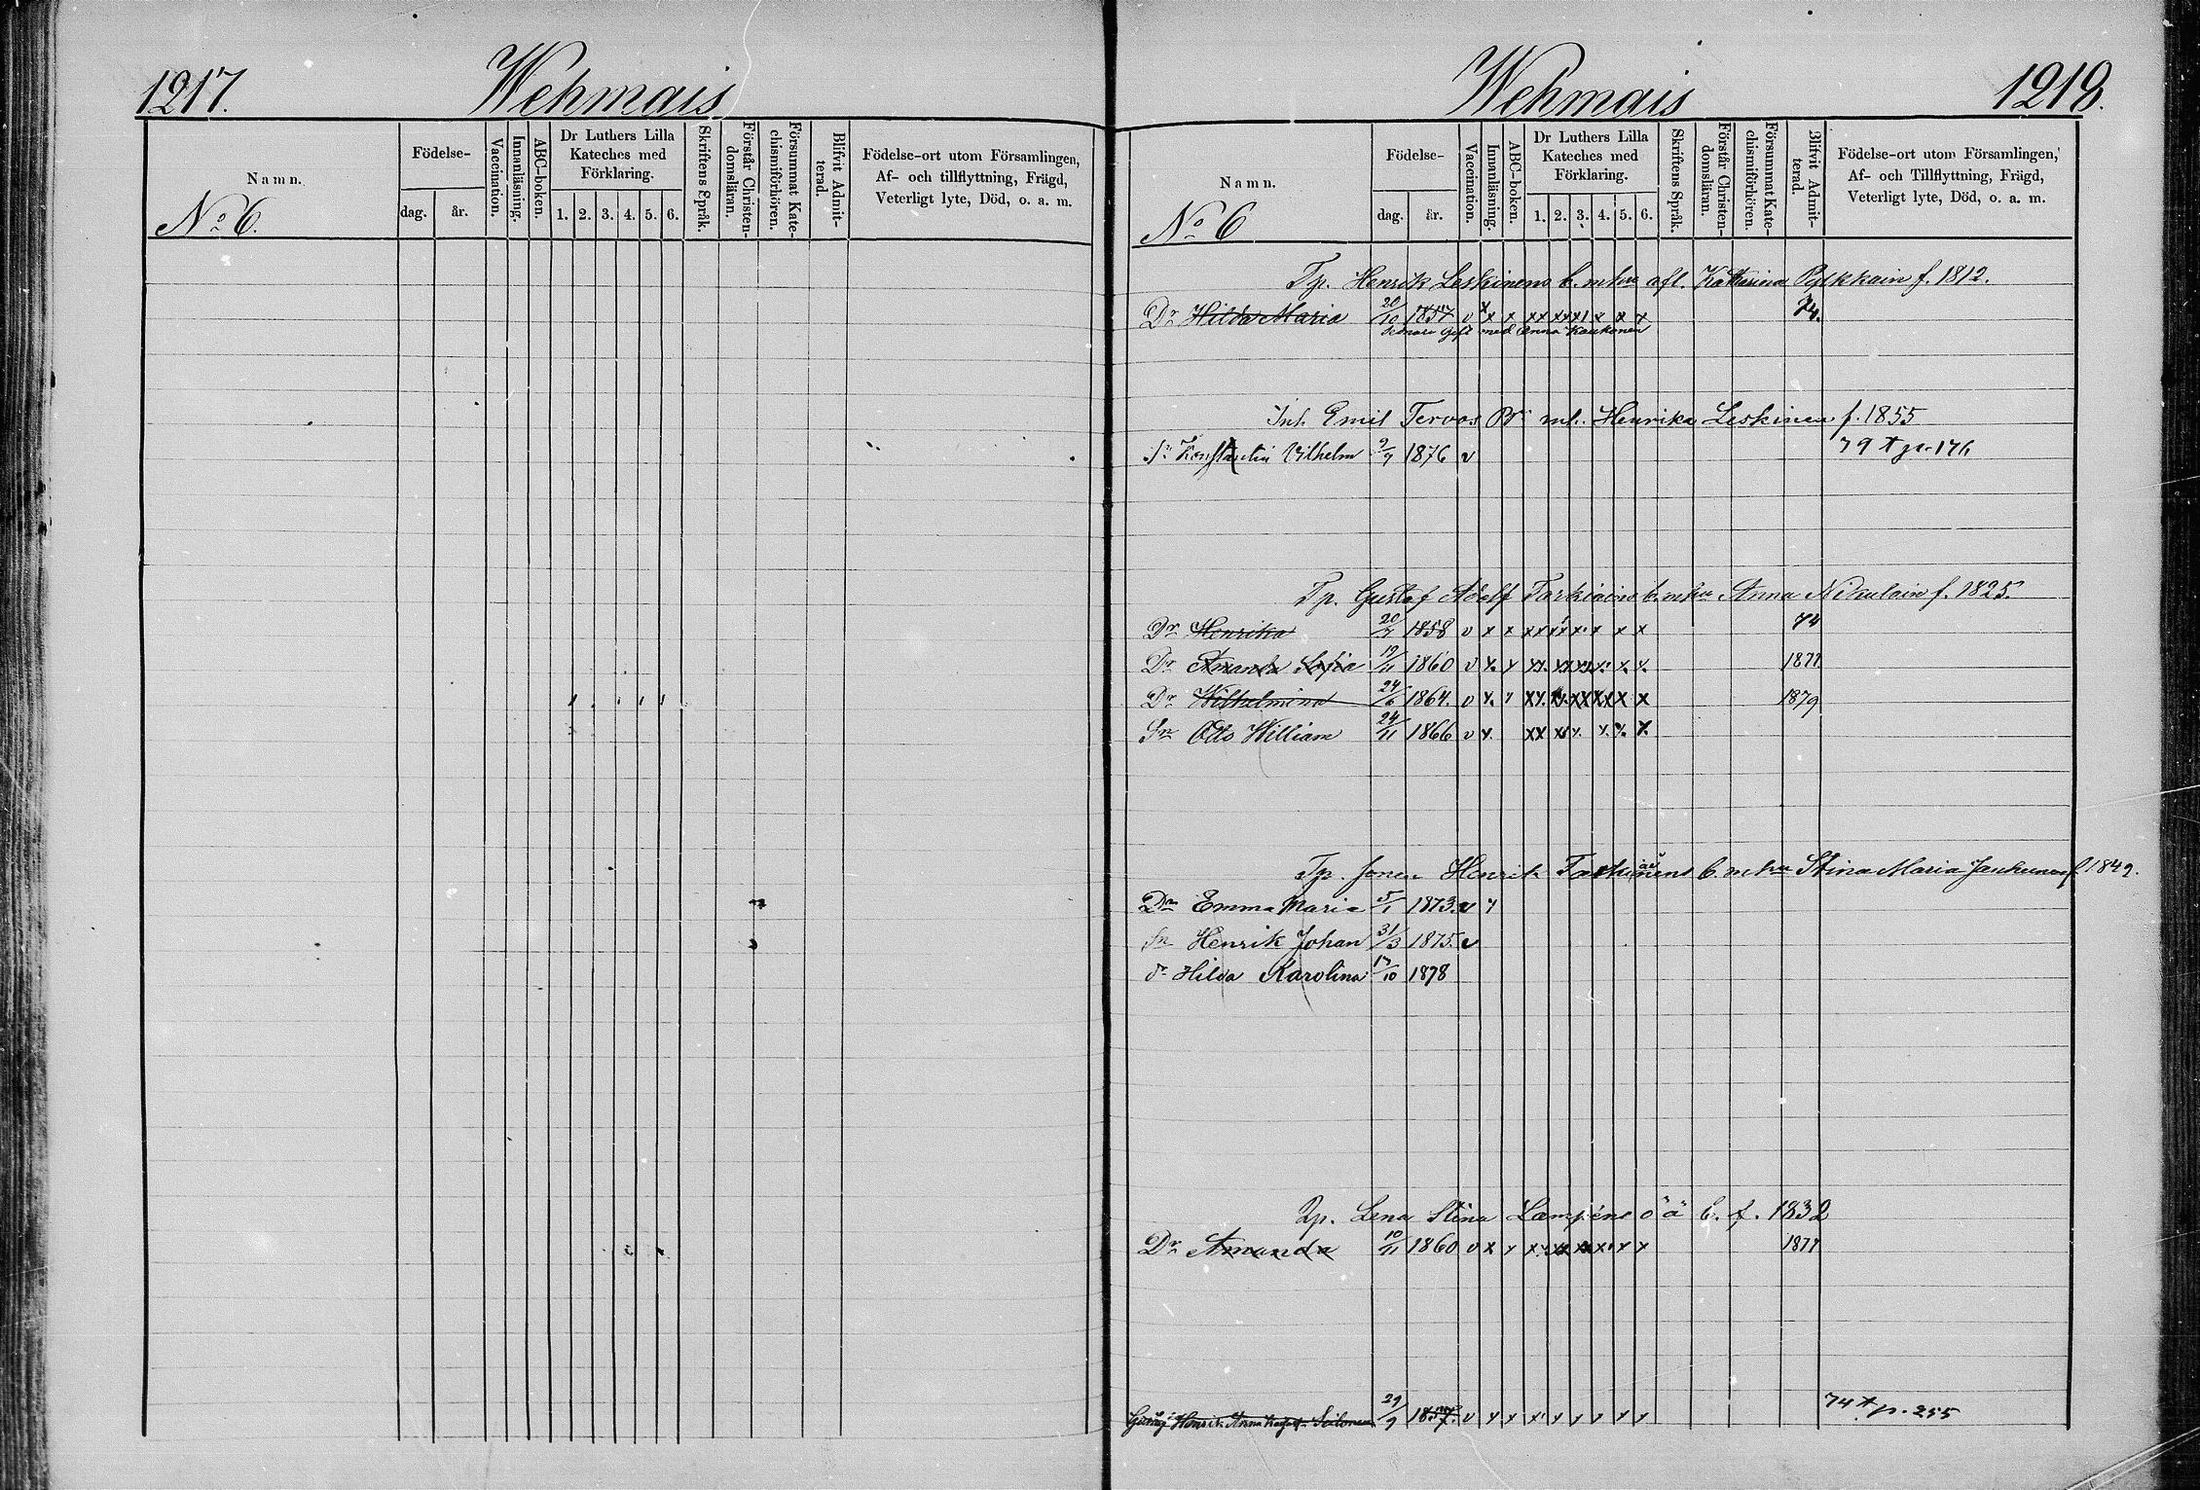 1217.
Wehmais
Namn.
No 6.
Födelse-
dag.
år.
Vaccination.
Innanläsning.
ABC-boken.
Dr Luthers Lilla
Kateches med
Förklaring.
1. 2. 3. 4. 5. 6.
Skriftens Språk.
Förstår Christen-
domsläran.
Försummat Kate-
chismiförhören.
Blifvit Admit-
terad.
Födelse-ort utom Församlingen,
Af- och tillflyttning, Frägd,
Veterligt lyte, Död, o. a. m.
Wehmais
1218.
Namn.
No 6
Födelse-
dag.
år.
Vaccination.
Innanläsning.
ABC-boken.
Dr Luthers Lilla
Kateches med
Förklaring.
1. 2. 3. 4. 5. 6.
Skriftens Språk.
Förstår Christen-
domsläran.
Försummat Kate-
chismiförhören.
Blifvit Admit-
terad.
Födelse-ort utom Församlingen,
Af- och Tillflyttning, Frägd,
Veterligt lyte, Död, o. a. m.
Tp. Henrik Leskinens b. m. hu afl. Katharina Pylkkäin f. 1812.
Dr Hilda Maria 20/10 1857 v x x xx xx x x x x x 74.
senare gift med Anna Kaukonen
Inh. Emil Tervos m. Henrika Leskinen f. 1855
Sn Konstantin Vilhelm 9/7 1876 v 79 † p. 176
Tp. Gustaf Adolf Tarkiains b. m. hu Anna Nikulain f. 1825.
Dr Henrika 20/7 1858 v x x xx xx x x x x 74
Dr Amanda Sofia 19/11 1860 v x x xx xx xx x x x 1877
Dr Wilhelmina 24/6 1864. v x x xx xx xx xx x x 1879
Sn Otto William 24/11 1866 v x xx xx x x x
Tp. Henrik Tarkiainens b. m. hu Stina Maria f. 1849.
Dr Emma Maria 5/1 1873. v x
Sn Henrik Johan 31/3 1875. v
dr Hilda Karolina 17/10 1878
Lena Stina Lampéns oä b. f. 1832
Dr Amanda 10/11 1860 v x x xx xx xx x x x 1877
Henrik Anna 29/9 1857. v x x x x x x x x 74 † p. 255